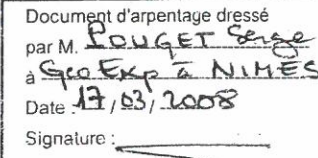 Document d'arpentage dressé
par M. POUGET Serge
à Geo Exp à NIMES
Date : 17 / 03 / 2008
Signature :